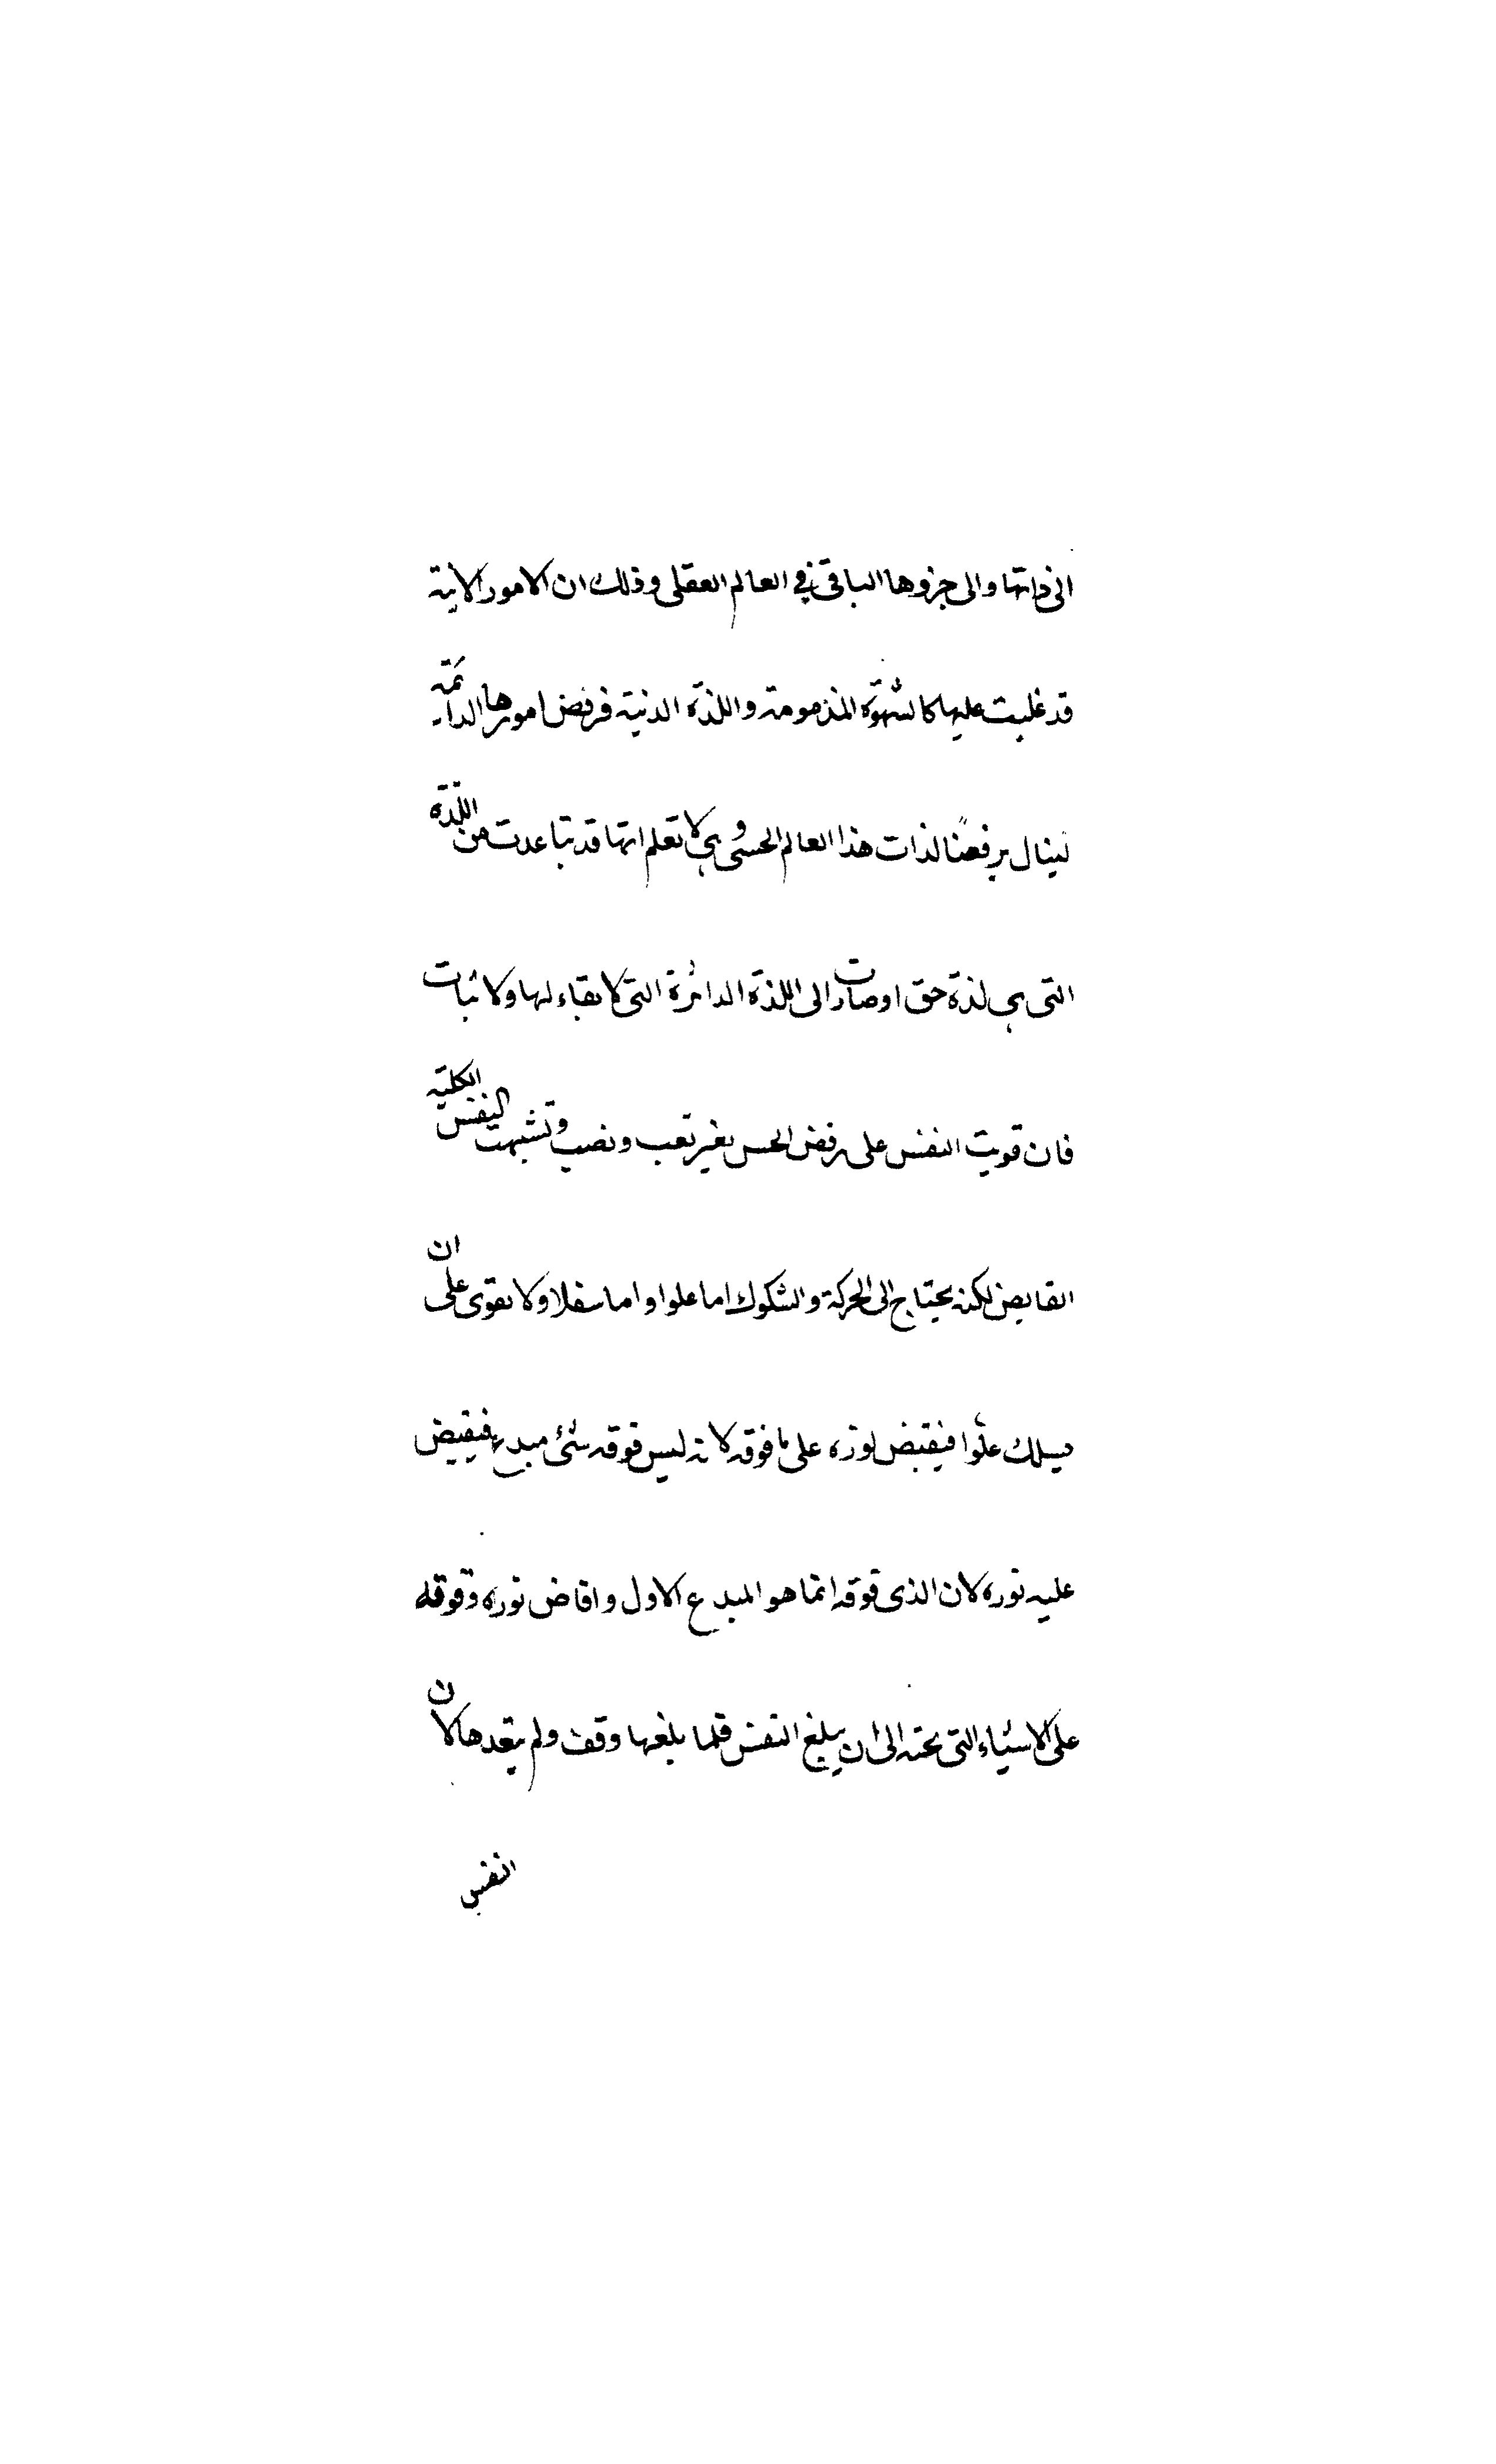 الى ذاتها والى جزوها الباقى فى العالم العقلى وذلك ان الامور الانية
قد غلبت عليها كالشهوة المذمومة واللذة الدنية فرفض امورها الدائمة
لينال برفضنا لذات هذا العالم الحسى وهى لا تعلم انها قد تباعدت من اللذة
التى هى لذة حق اوصارت الى اللذة الداثرة التى لا بقاء لها ولا ثبات
فان قويت النفس على رفض الحس بغير تعب ونصب وتشبهت النفس الكلية
الفايض لكنه يحتاج الى الحركة والشكوك اما علوا واما سفلا ولا يقوى على ان
يسلك علوا فيقبض نوره على ما فوقه لانه ليس فوقه شئ مبدع فيفيض
عليه نوره لان الذى فوقه انما هو المبدع الاول وافاض نوره وقوته
على الاشياء التى تحته الى ان يبلغ النفس فلما بلغها وقف ولم يتعدها لان
النفس